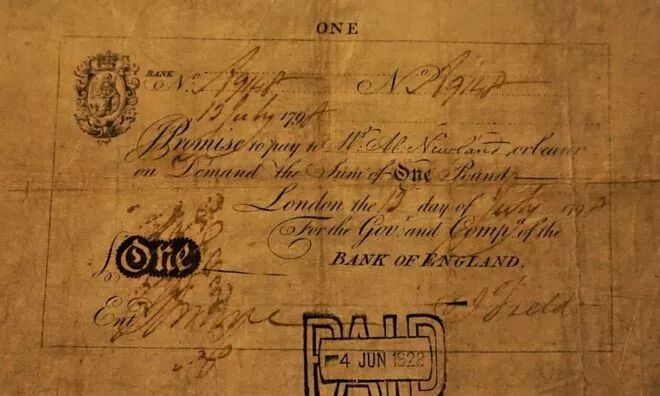 ONE
BANK No. 9148 No. 9148
13 July 1798
I Promise to pay to Mr. Ab. Newland, or bearer
on Demand the Sum of One Pound
London the 13 day of July 1798
For the Govr. and Compa. of the
£ One BANK OF ENGLAND.
Entd. J Field
PAID
4 JUN 1922